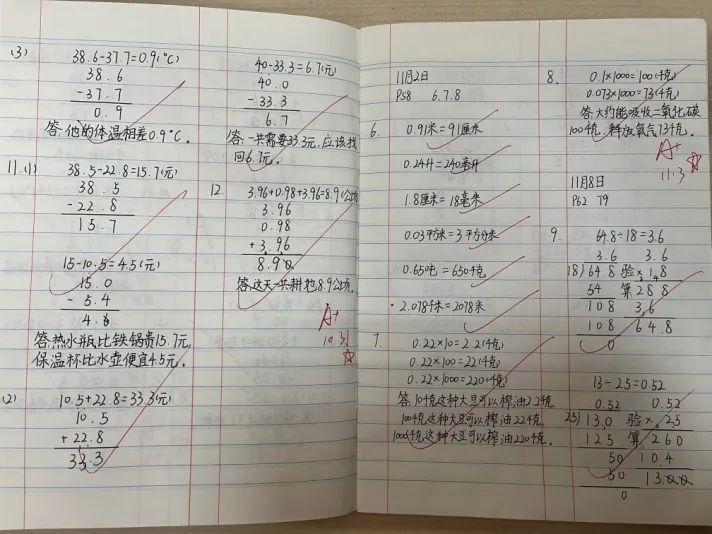 (3) 38.6-37.7=0.9(℃)
38.6
-37.7
0.9
答:他的体温相差0.9℃。
11.(1) 38.5-22.8=15.7(元)
38.5
-22.8
15.7
15-10.5=4.5(元)
15.0
- 5.4
4.6
答:热水瓶比铁锅贵15.7元,
保温杯比水壶便宜4.5元。
(2) 10.5+22.8=33.3(元)
10.5
+22.8
33.3
40-33.3=6.7(元)
40.0
-33.3
6.7
答:一共需要33.3元,应该找
回6.7元。
12. 3.96+0.98+3.96=8.9(公顷)
3.96
0.98
+3.96
8.90
答:这天一共耕地8.9公顷。
A+
10.31
11月2日
P58 6.7.8
6. 0.91米=91厘米
0.24升=240毫升
1.8厘米=18毫米
0.03平方米=3平方分米
0.65吨=650千克
2.078千米=2078米
7. 0.22×10=2.2(千克)
0.22×100=22(千克)
0.22×1000=220(千克)
答:10千克这种大豆可以榨油2.2千克,
100千克这种大豆可以榨油22千克,
1000千克这种大豆可以榨油220千克。
8. 0.1×1000=100(千克)
0.073×1000=73(千克)
答:大约能吸收二氧化碳
100千克,释放氧气73千克。
A+
11.3
11月8日
P62 T9
9. 64.8÷18=3.6
3.6 3.6
18)64.8 验×18
54 算288
108 3.6
108 64.8
0
13÷25=0.52
0.52 0.52
25)13.0 验×25
125 算260
50 10.4
50 13.00
0